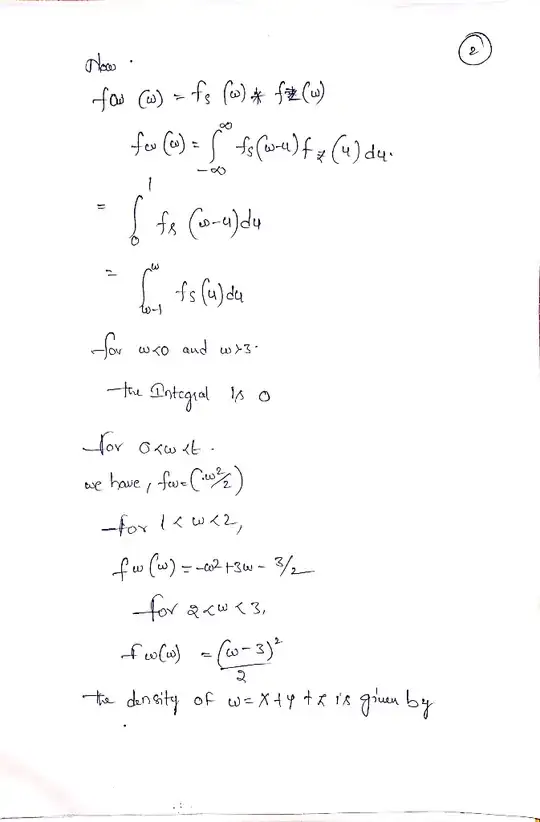 2
Now.
fω (ω) = fs (ω) * fz (ω)
fω (ω) = ∫_{-∞}^{∞} fs(ω-u) f z (u) du.
= ∫_{0}^{1} fs (ω-u) du
= ∫_{ω-1}^{ω} fs (u) du
for ω<0 and ω>3.
the Integral is 0
for 0<ω<1.
we have, fω = (ω²/2)
for 1 < ω < 2,
fω (ω) = -ω2 + 3ω - 3/2
for 2<ω<3,
fω(ω) = (ω-3)²/2
the density of ω = x + y + z is given by